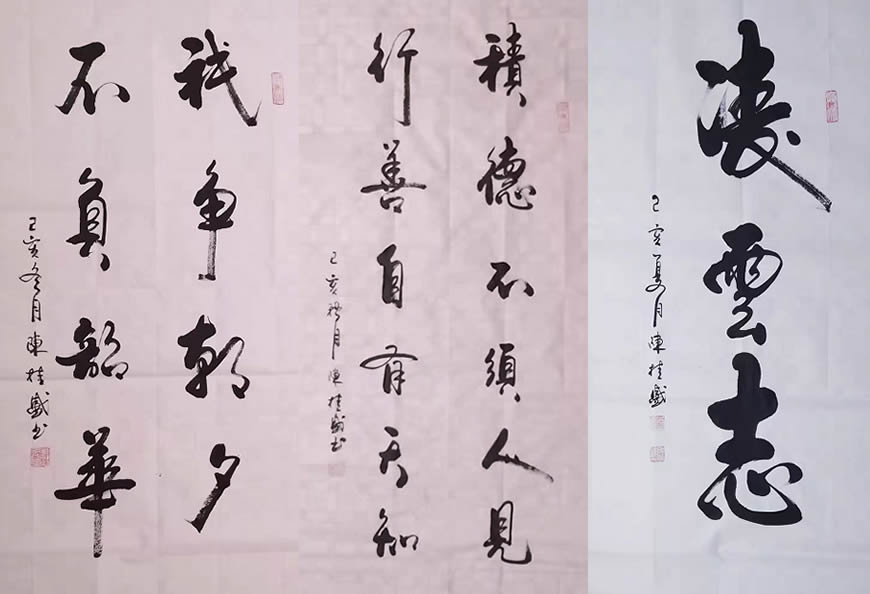 祇争朝夕
不負韶華
己亥冬月陳桂盛书
積德不須人見
行善自有天知
己亥月陳桂盛书
凌雲志
己亥夏月陳桂盛